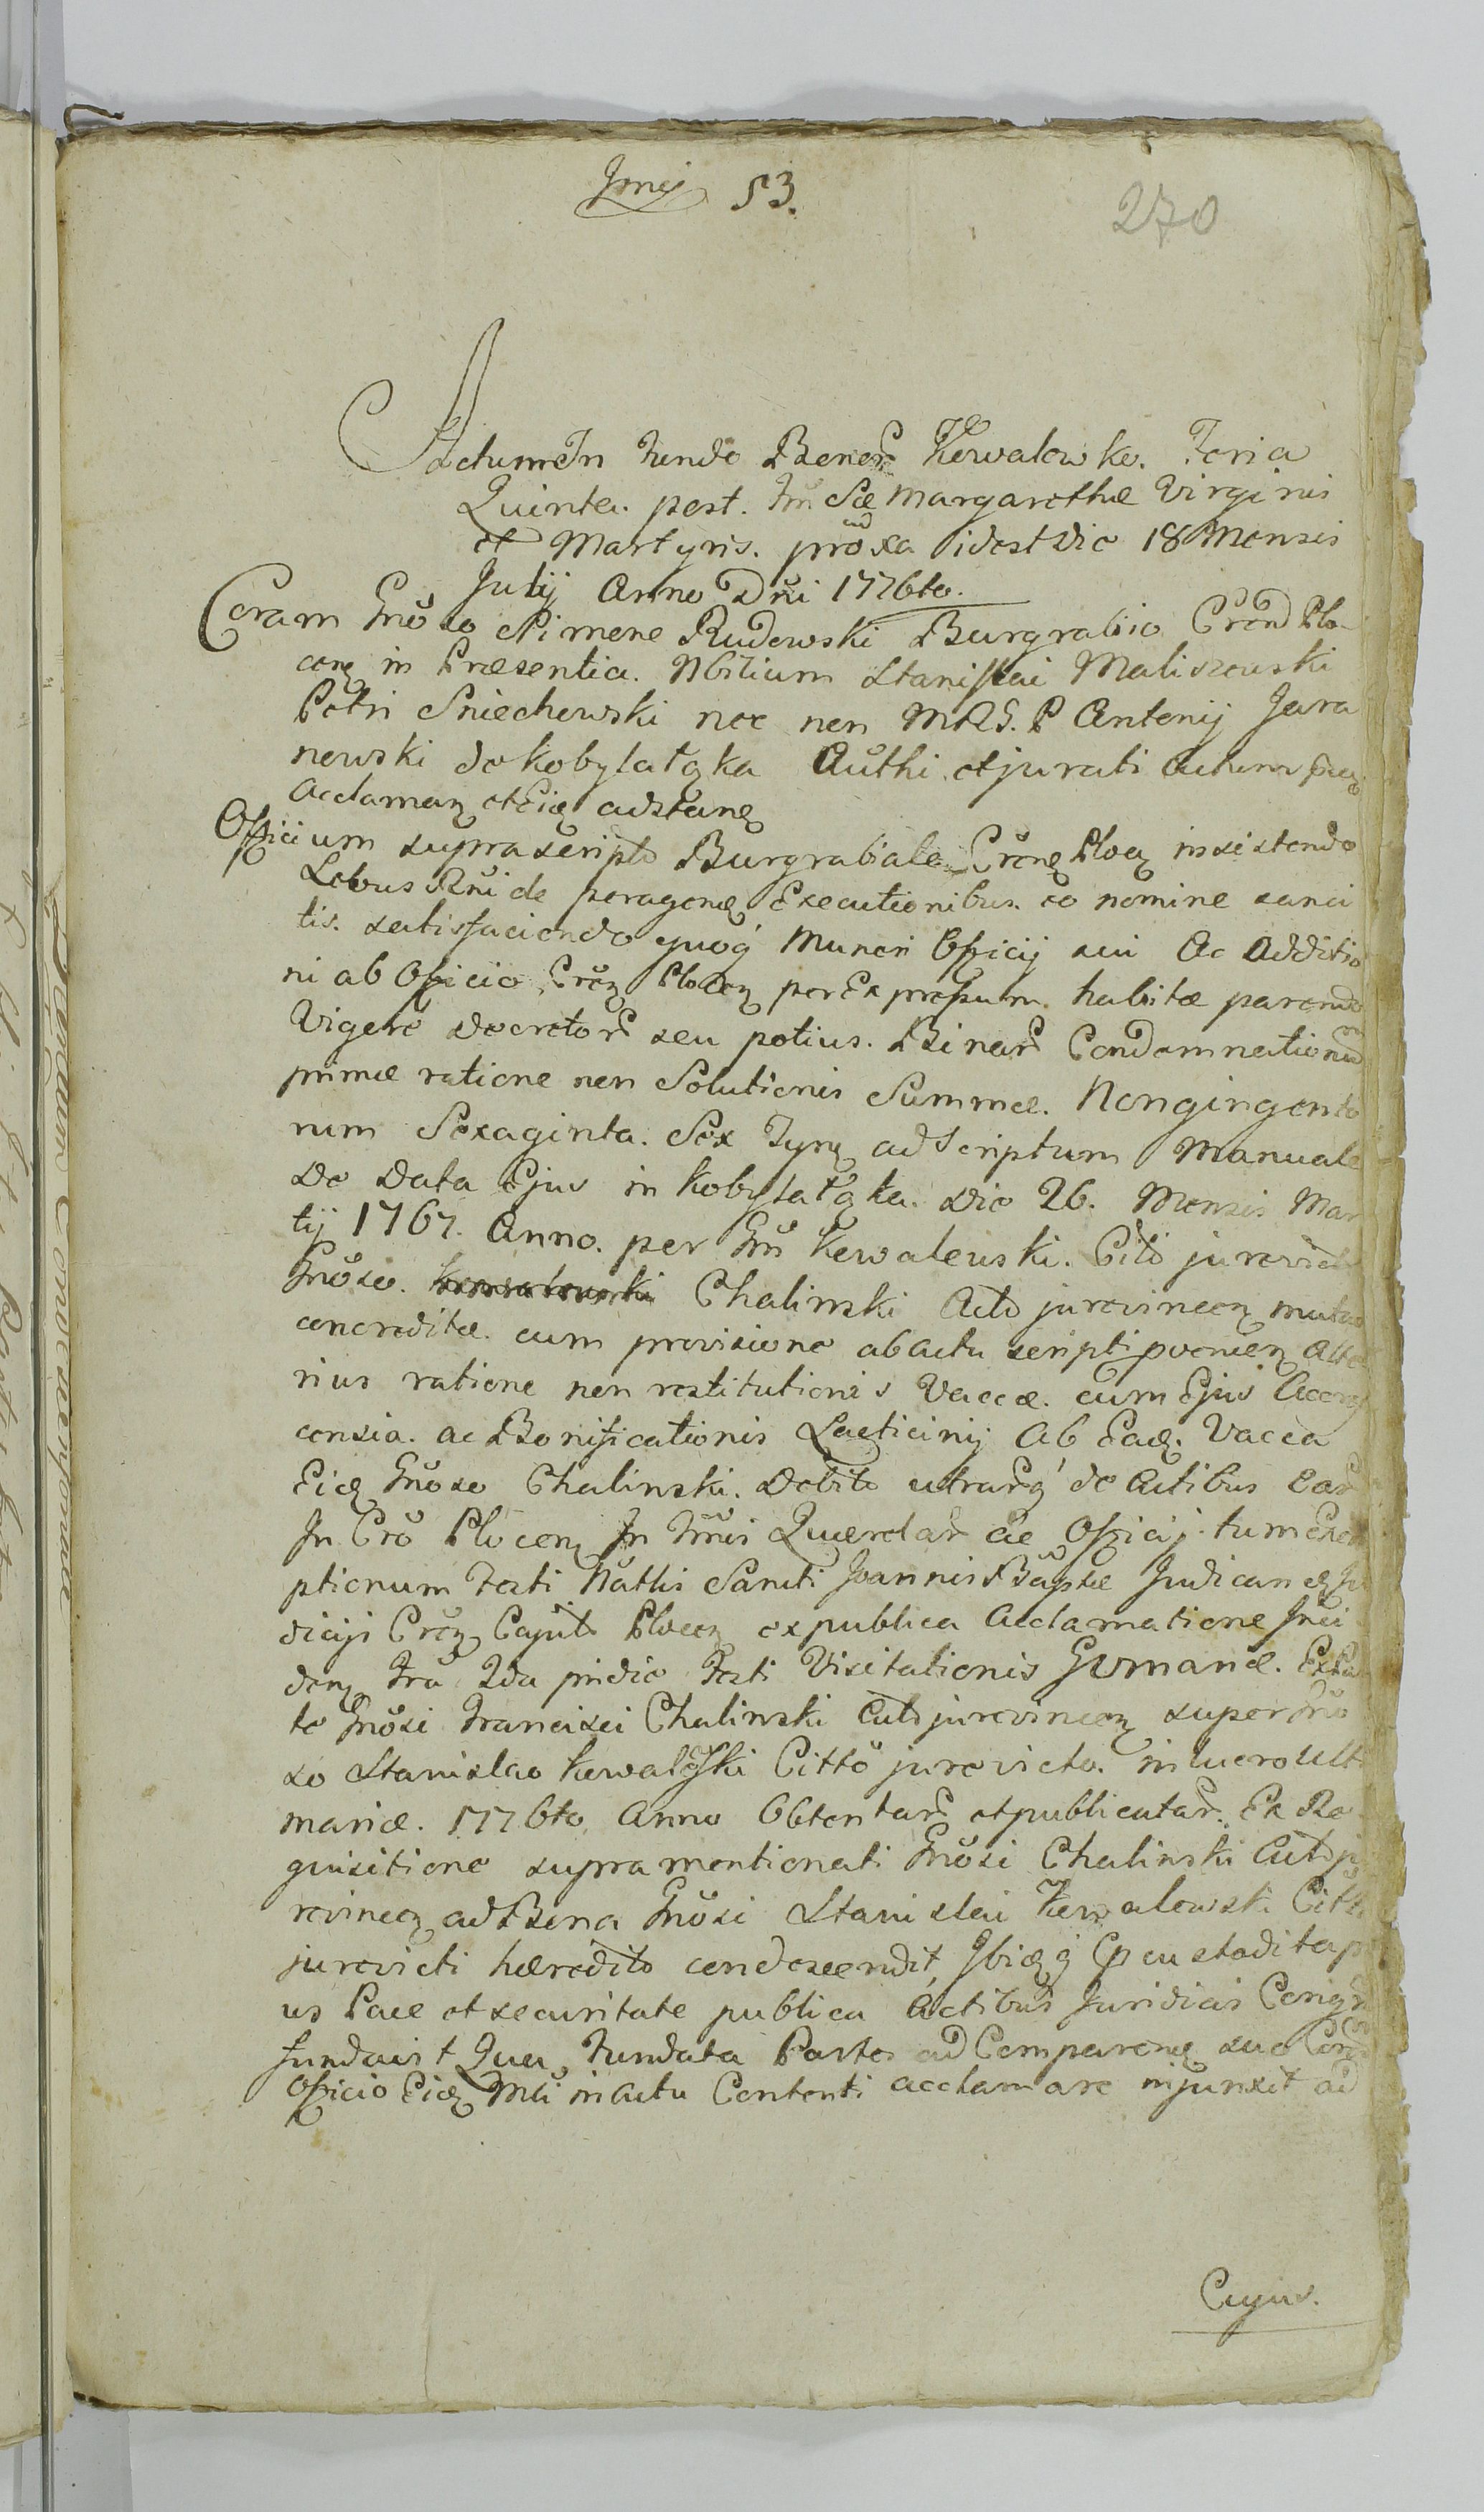 53.
270
Actum In Fundo Bonor Kowalewko. Feria
Quinta. post. Fm Sæ Margarethæ Virginis
et Martyris. proxa idest die 18 Mensis
Julij Anno Dni 1776to.
Coram Gnoso Rudowski Burgrabio Crend Plo-
cen in Præsentia. Nbilium Stanislai Maliszewski
Petri Sniechowski nec non MRS. P Antonij Jara
nowski de Kobylałąka Authi et jurati Actum
Acclaman et Eid adstan
Officium suprascripto Burgrabiale Crene Ploen insistendo
Lebus Rni de peragend Executionibus. eo nomine sanci
tis. satisfaciendo quoq Muneri Officij sui Ac Additio
ni ab Officio Cren Plocen per Expressum habitæ parendo
Vigere decretor seu potius. Binar Condemnationum
primæ ratione non Solutionis Summæ. Nongingento
rum Sexaginta. Sex Tyn ad Scriptum Manuale
De Data Ejus in Kobylałąka. die 26. Mensis Mar
tij 1767. Anno. per Gm Kowalewski. Citto jurevicto
Gnoso. Kowalewski Chalinski Acto jurevincen mutuo
concreditæ. cum provisione ab actu scripti provenien Alte
rius ratione non restitutionis Vaccæ. cum Ejus
censia. ac Bonificationis Lacticinij Ab Ead. Vacca
Eid Gnoso Chalinski. Debito utrarq de Actibus Ear
In Cro Plocen In Tmis Querelar ac Officij. tum Exce
ptionum Festi Nathis Sancti Joannis Baptæ Judican
dicijs Cren Capit Plocen ex publica Acclamatione Inci
den Fra 2da pridie Festi Visitationis Gumanæ. Ex Par
te Gnosi Francisci Chalinski Acto jurevincen super Gno
so Stanislao Kowalewski Citto jurevicto. in lucro Ulti
mariæ. 1776to Anno Obtentar et publicatar. Ex Re
quisitione supra mentionati Gnosi Chalinski Acto ju
revincen ad Bona Gnosi Stanislai Kowalewski Citti
jurevicti hæredito condescendit, Ibidq custodita
us Pace et securitate publica Actibus Juridicis
fundavit Qua, Fundata Partes ad Comparend suo
Officio Eid Mli in actu Contenti acclamare injunxit ad
Cujus.